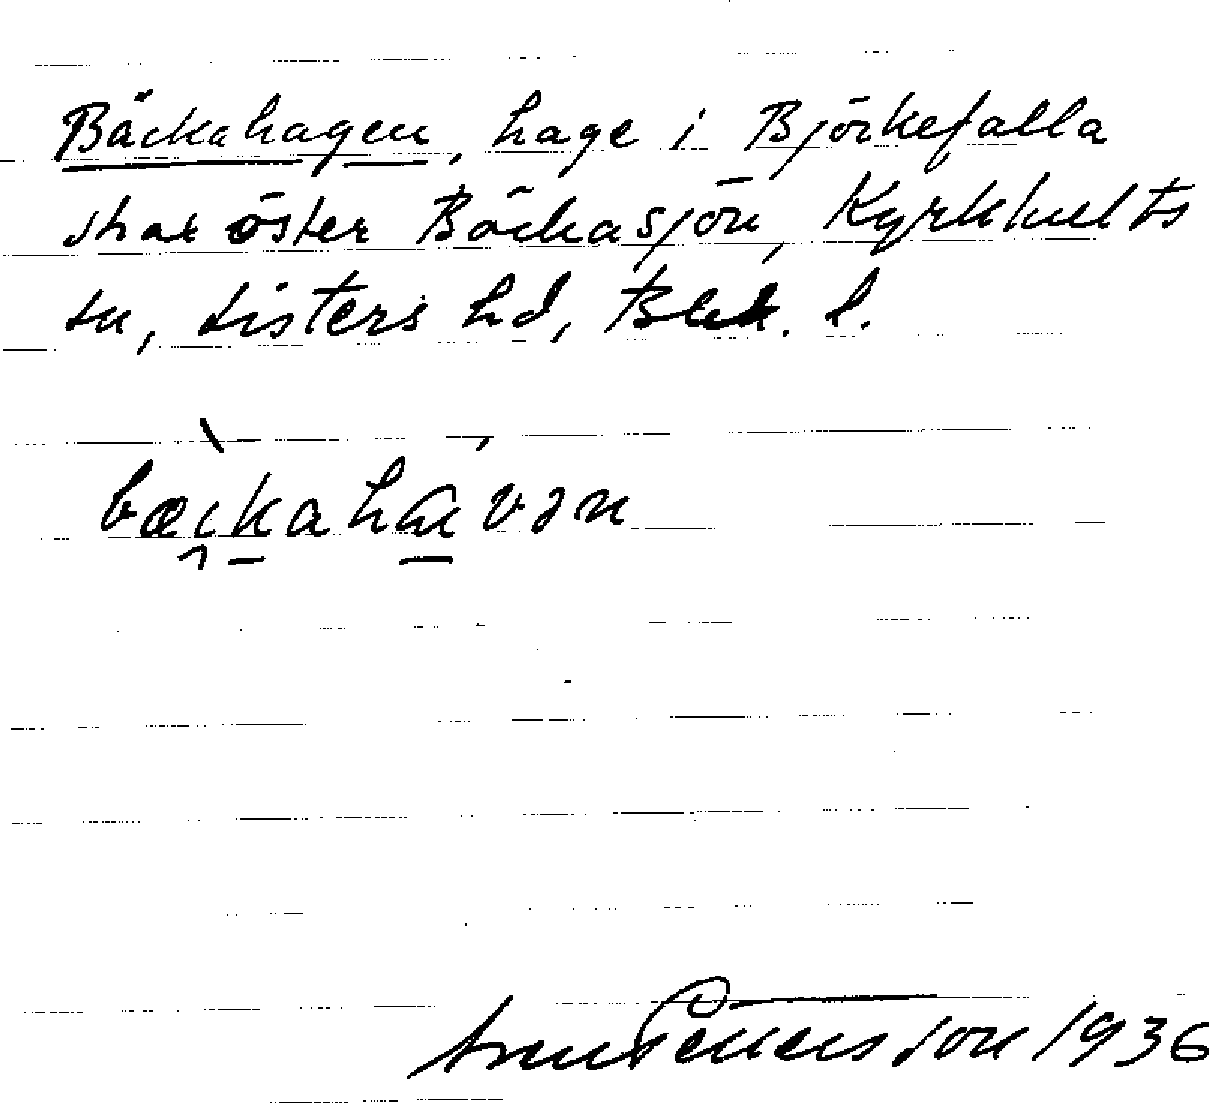 Bäckahagen, hage i Björkefalla
strax öster Bäckasjön, Kyrkhults
sn, Listers hd, Blek. l.
bæikaha vən
Pettersson 1936